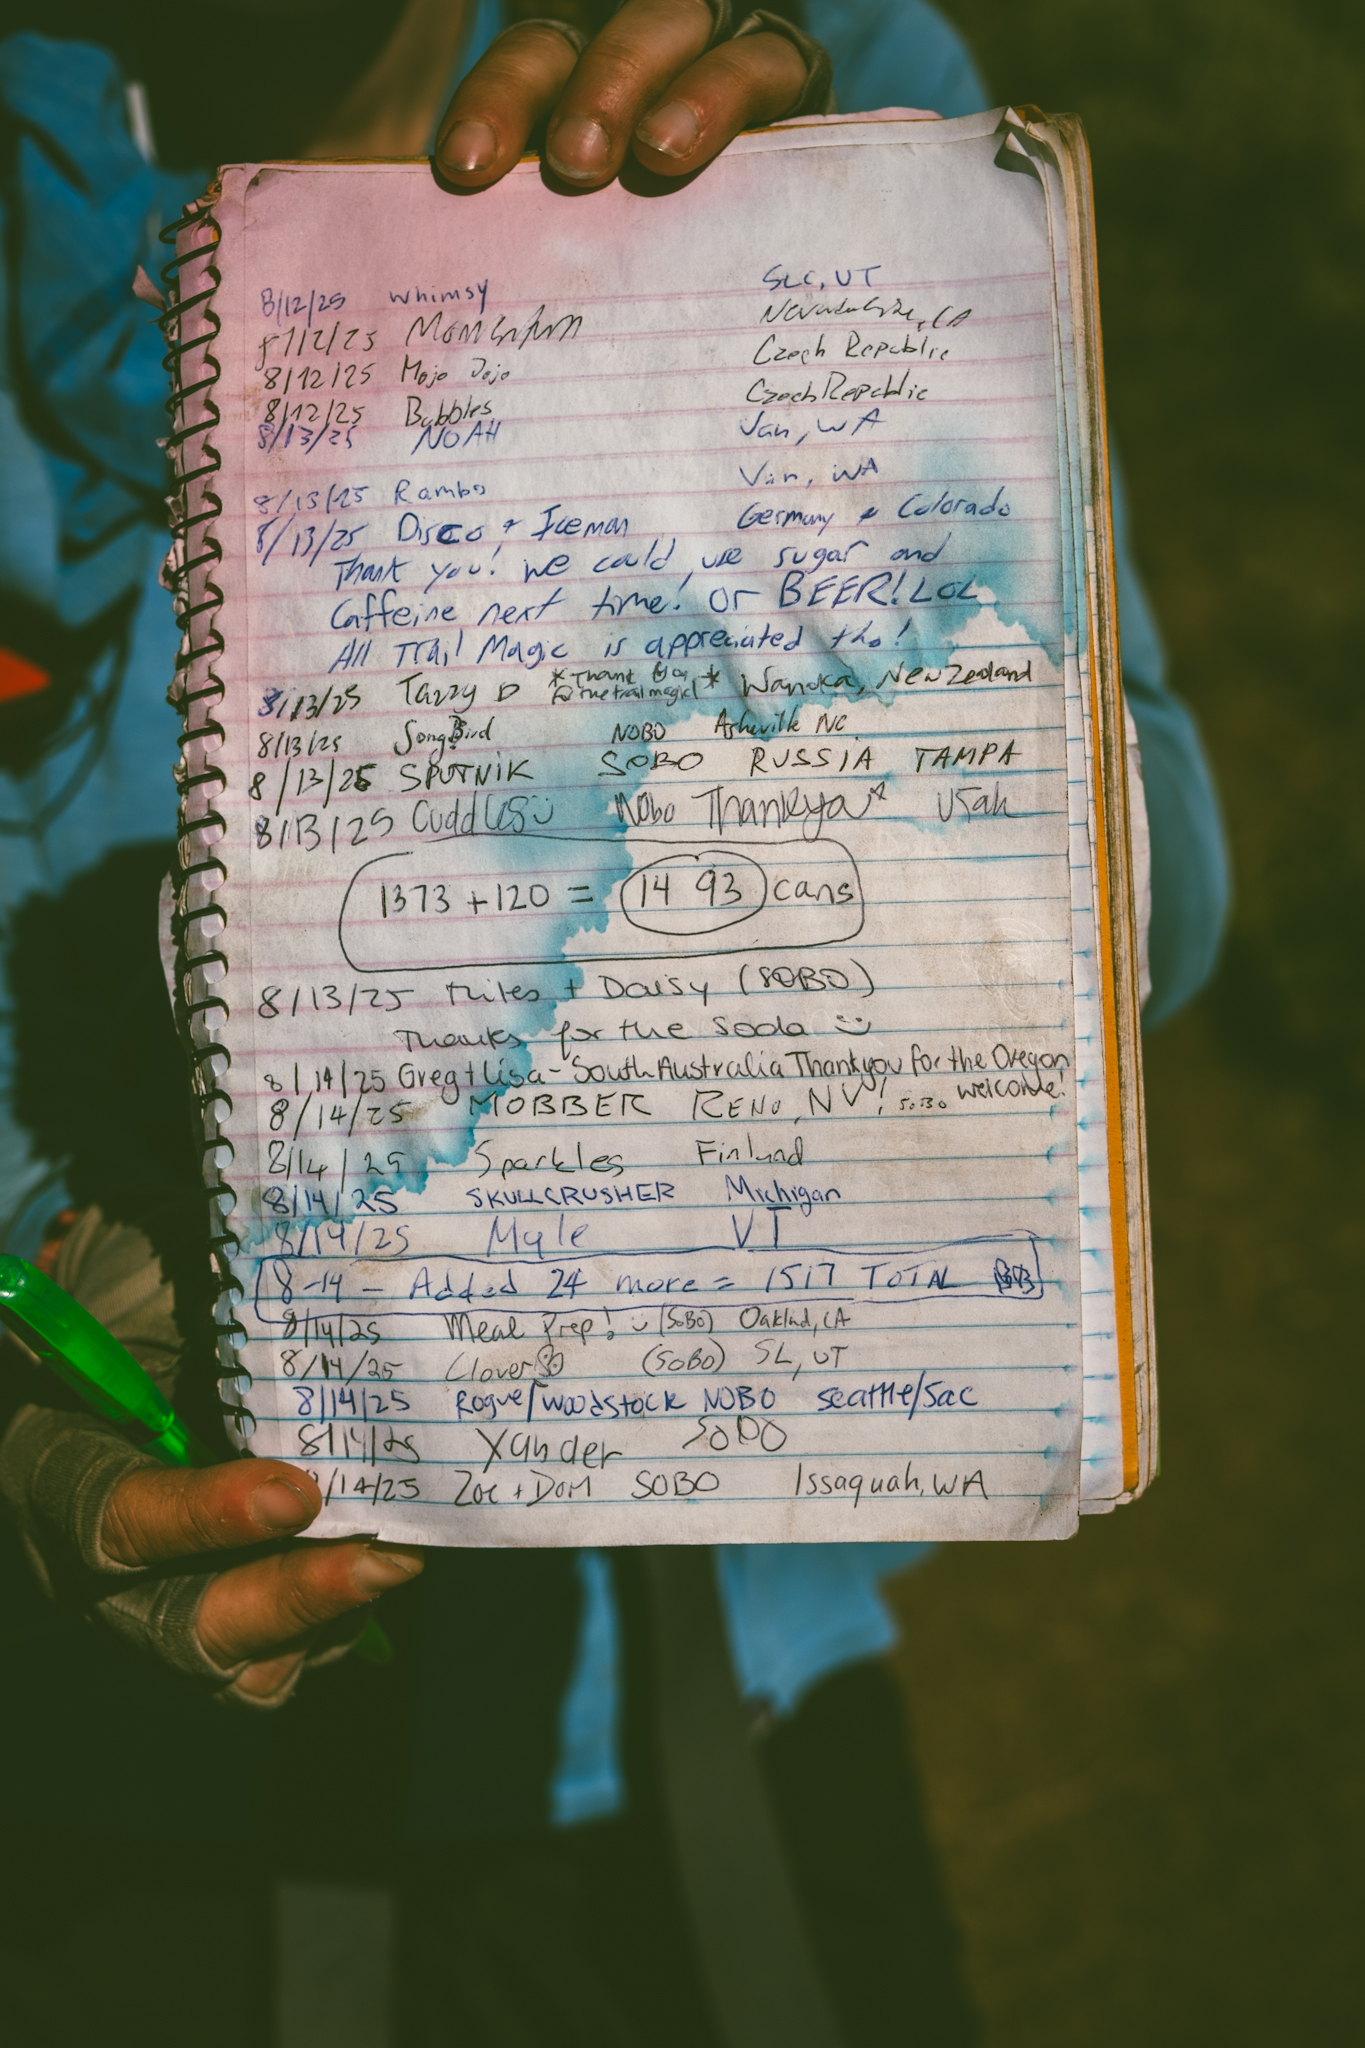 8/12/25 Whimsy SLC, UT
8/12/25 CA
8/12/25 Mojo Jojo Czech Republic
8/12/25 Bubbles Czech Republic
8/13/25 NOAH Van, WA
8/13/25 Rambo Van, WA
8/13/25 Disco + Iceman Germany + Colorado
Thank you! we could use sugar and
Caffeine next time! or BEER! LOL
All Trail Magic is appreciated tho!
8/13/25 Tazzy D *Thank you 4 the trail magic!* Wanaka, New Zealand
8/13/25 SongBird NOBO Asheville NC
8/13/25 SPUTNIK SOBO RUSSIA TAMPA
8/13/25 Cuddles NOBO Thankya Utah
1373 + 120 = 1493 cans
8/13/25 + Daisy (SOBO)
Thanks for the soda
8/14/25 Greg + Lisa - South Australia Thankyou for the Oregon welcome!
8/14/25 MOBBER RENO, NV! SOBO
8/14/25 Sparkles Finland
8/14/25 SKULLCRUSHER Michigan
8/14/25 Myle VT
8-14 - Added 24 more = 1517 TOTAL
8/14/25 Meal Prep! (SOBO) Oakland, CA
8/14/25 Clover (SOBO) SL, UT
8/14/25 Rogue/Woodstock NOBO seattle/Sac
8/14/25 Xander SOBO
/14/25 Zoe + Dom SOBO Issaquah, WA